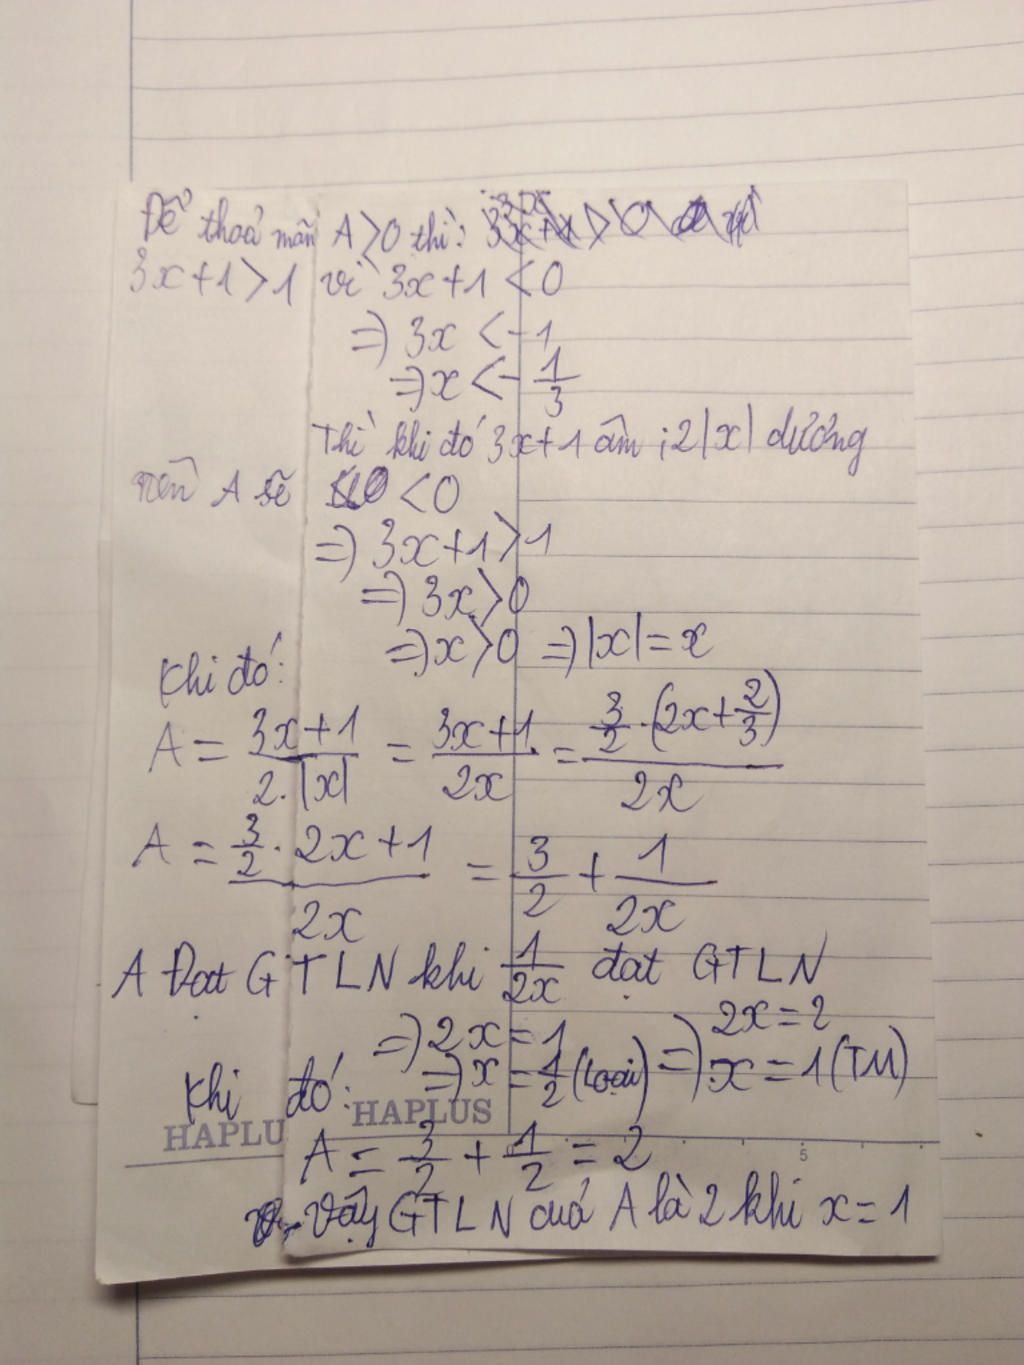 Để thoả mãn A>0 thì:
3x+1>1 vì 3x+1 <0
=> 3x <-1
=> x <- 1/3
Thì khi đó 3x+1 âm ; 2|x| dương
nên A sẽ <0
=> 3x+1>1
=> 3x>0
=> x>0 => |x|= x
Khi đó:
A = (3x+1)/(2.|x|) = (3x+1)/(2x) = (3/2 .(2x+2/3))/(2x)
A = (3/2 . 2x+1)/(2x) = 3/2 + 1/(2x)
A Đạt GTLN khi 1/(2x) đạt GTLN
=> 2x=1
=> x = 1/2 (Loại) => 2x=2
x=1(TM)
Khi đó:
HAPLU HAPLUS
A = 3/2 + 1/2 = 2
5
Vậy GTLN của A là 2 khi x=1